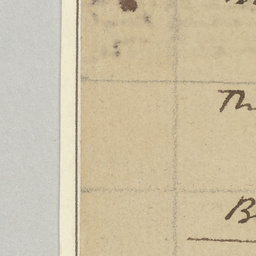 Th
B